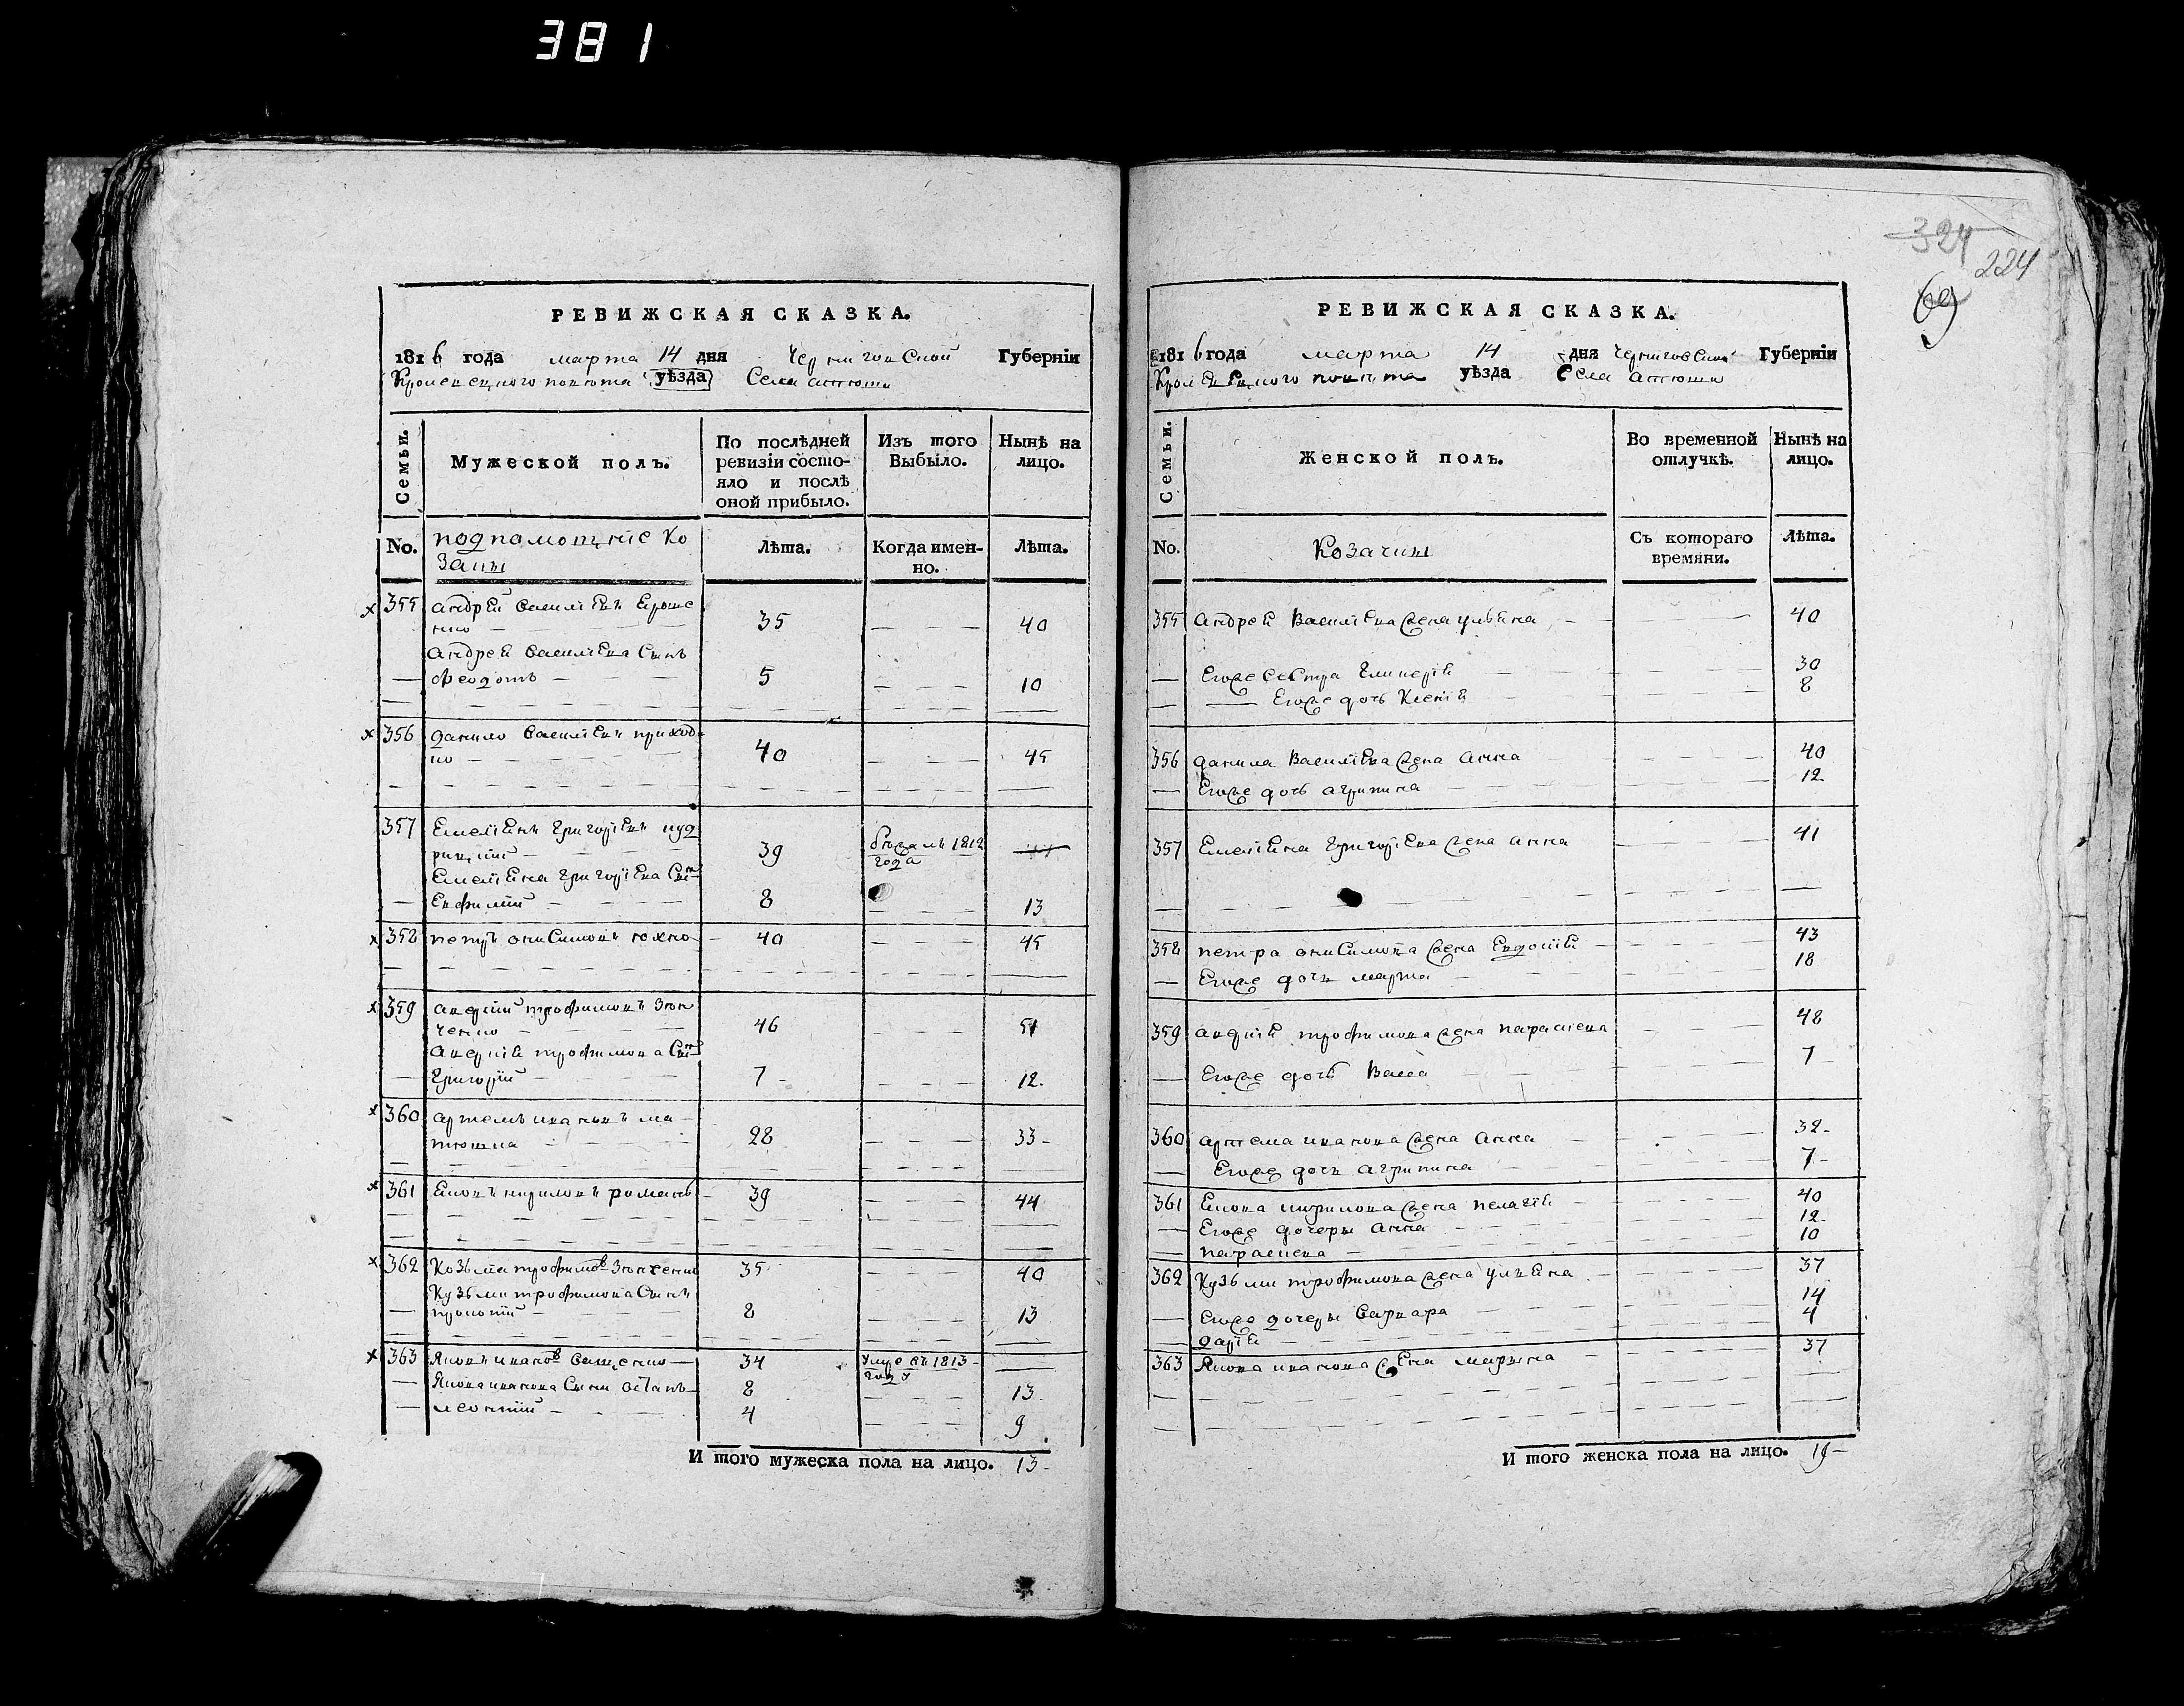 381
РЕВИЖСКАЯ СКАЗКА.
1816 года марта 14 дня Черниговской Губерніи
Кролевецкого повѣта уѣзда Села Атюши
Семьи.
Мужеской полъ.
По послѣдней ревизіи состо-
яло и послѣ
оной прибыло.
Изъ того
Выбыло.
Нынѣ на
лицо.
No.
подпамошніе ко
заки
Лѣта.
Когда имен-
но.
Лѣта.
355 Андрей Василіевъ Ероше
нко 35 40
Андрея Василіева Сынъ
Феодотъ 5 10
356 Данило Василіевъ приход
ко 40 45
357 Емеліянъ Григоріевъ
39 бѣжалъ 1812
года
Емеліяна Григоріева Сынъ
Евфимій 8 13
358 Петръ Онисимовъ Юхно 40 45
359 Андрій трофимовъ Зюб
ченко 46 51
Андрія трофимова Сынъ
Григорій 7 12
360 Артемъ ивановъ ма
тюшка 28 33
361 Еиовъ кириловъ романъ 39 44
362 Козьма трофимовъ Зюпченко 35 40
Кузьмы трофимова Сынъ
прокопій 8 13
363 Яковъ ивановъ Ващенко 34 умре въ 1813
году
Якова иванова Сыны Остапъ 8 13
леонтій 4 9
И того мужеска пола на лицо. 13
324
224
69
РЕВИЖСКАЯ СКАЗКА.
1816 года марта 14 дня Черниговской Губерніи
Кролевецкого повѣта уѣзда Села Атюши
Семьи.
Женской полъ.
Во временной
отлучкѣ.
Нынѣ на
лицо.
No.
Козачки
Съ котораго
времяни.
Лѣта.
355 Андрея Василіева жена ульяна 40
Егоже Сестра Гликерія 30
Егоже дочь Ксенія 8
356 Данила Василіева жена Анна 40
Егоже дочь Агрипина 12
357 Емеліяна Григоріева жена Анна 41
358 Петра Онисимова жена Евдокія 43
Егоже дочь марта 18
359 Андрія трофимова жена параскева 48
Егоже дочь Васса 7
360 Артема иванова жена Анна 32
Егоже дочь Агрипина 7
361 Еиова кирилова жена пелагія 40
Егоже дочеры Анна 12
параскева 10
362 Кузьмы трофимова жена ульяна 37
Егоже дочеры Варвара 14
Дарія 4
363 Якова иванова жена марына 37
И того женска пола на лицо. 19